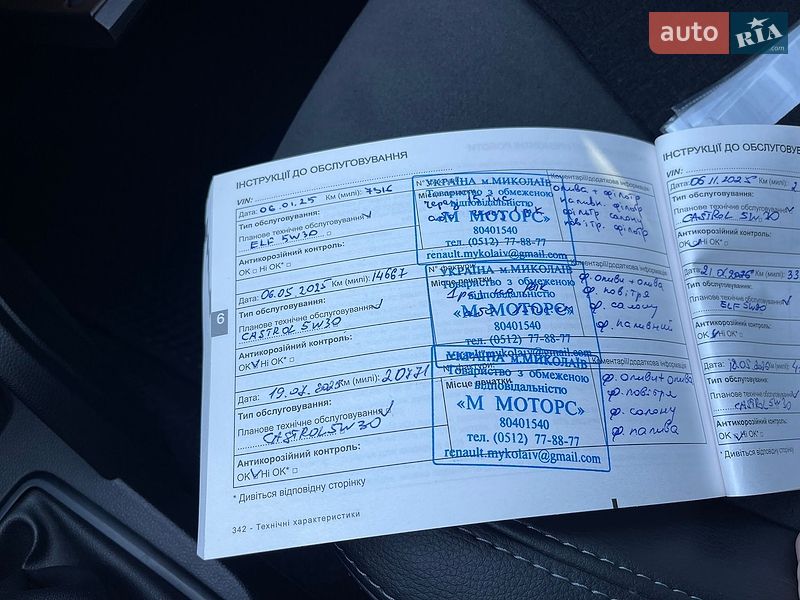 auto RIA
ІНСТРУКЦІЇ ДО ОБСЛУГОВУВАННЯ
VIN:
Дата: 06.01.25 Км (милі): 7316
Тип обслуговування:
Планове технічне обслуговування
ELF 5W30
Антикорозійний контроль:
OK □ Ні OK* □
Коментарі/додаткова інформація
УКРАЇНА м.МИКОЛАЇВ
Товариство з обмеженою
відповідальністю
«М МОТОРС»
80401540
тел. (0512) 77-88-77
renault.mykolaiv@gmail.com
олива + фільтр
паливн. фільтр
фільтр салону
повітр. фільтр
Дата: 06.05.2025 Км (милі): 14667
Тип обслуговування:
Планове технічне обслуговування
CASTROL 5W30
Антикорозійний контроль:
OK Ні OK* □
Коментарі/додаткова інформація
УКРАЇНА м.МИКОЛАЇВ
Товариство з обмеженою
відповідальністю
«М МОТОРС»
80401540
тел. (0512) 77-88-77
renault.mykolaiv@gmail.com
ф. оливи + олива
ф. повітря
ф. салону
ф. паливний
Дата: 19.07.2025 Км (милі): 20771
Тип обслуговування:
Планове технічне обслуговування
CASTROL 5W30
Антикорозійний контроль:
OK Ні OK* □
Місце печатки
Коментарі/додаткова інформація
УКРАЇНА м.МИКОЛАЇВ
Товариство з обмеженою
відповідальністю
«М МОТОРС»
80401540
тел. (0512) 77-88-77
renault.mykolaiv@gmail.com
ф. оливи + олива
ф. повітря
ф. салону
ф. палива
* Дивіться відповідну сторінку
342 - Технічні характеристики
6
ІНСТРУКЦІЇ ДО ОБСЛУГОВУВ
VIN:
Дата: 06.11.2025 Км (милі):
Тип обслуговування:
Планове технічне обслуговування
CASTROL 5W30
Антикорозійний контроль:
OK Ні OK* □
Дата: Км (милі): 33
Тип обслуговування:
Планове технічне обслугову
ELF 5W30
Антикорозійний контроль:
OK Ні OK* □
Дата: Км (милі):
Тип обслуговування:
Планове технічне обслугов
CASTROL 5W30
Антикорозійний контроль:
OK Ні OK* □
* Дивіться відповідну